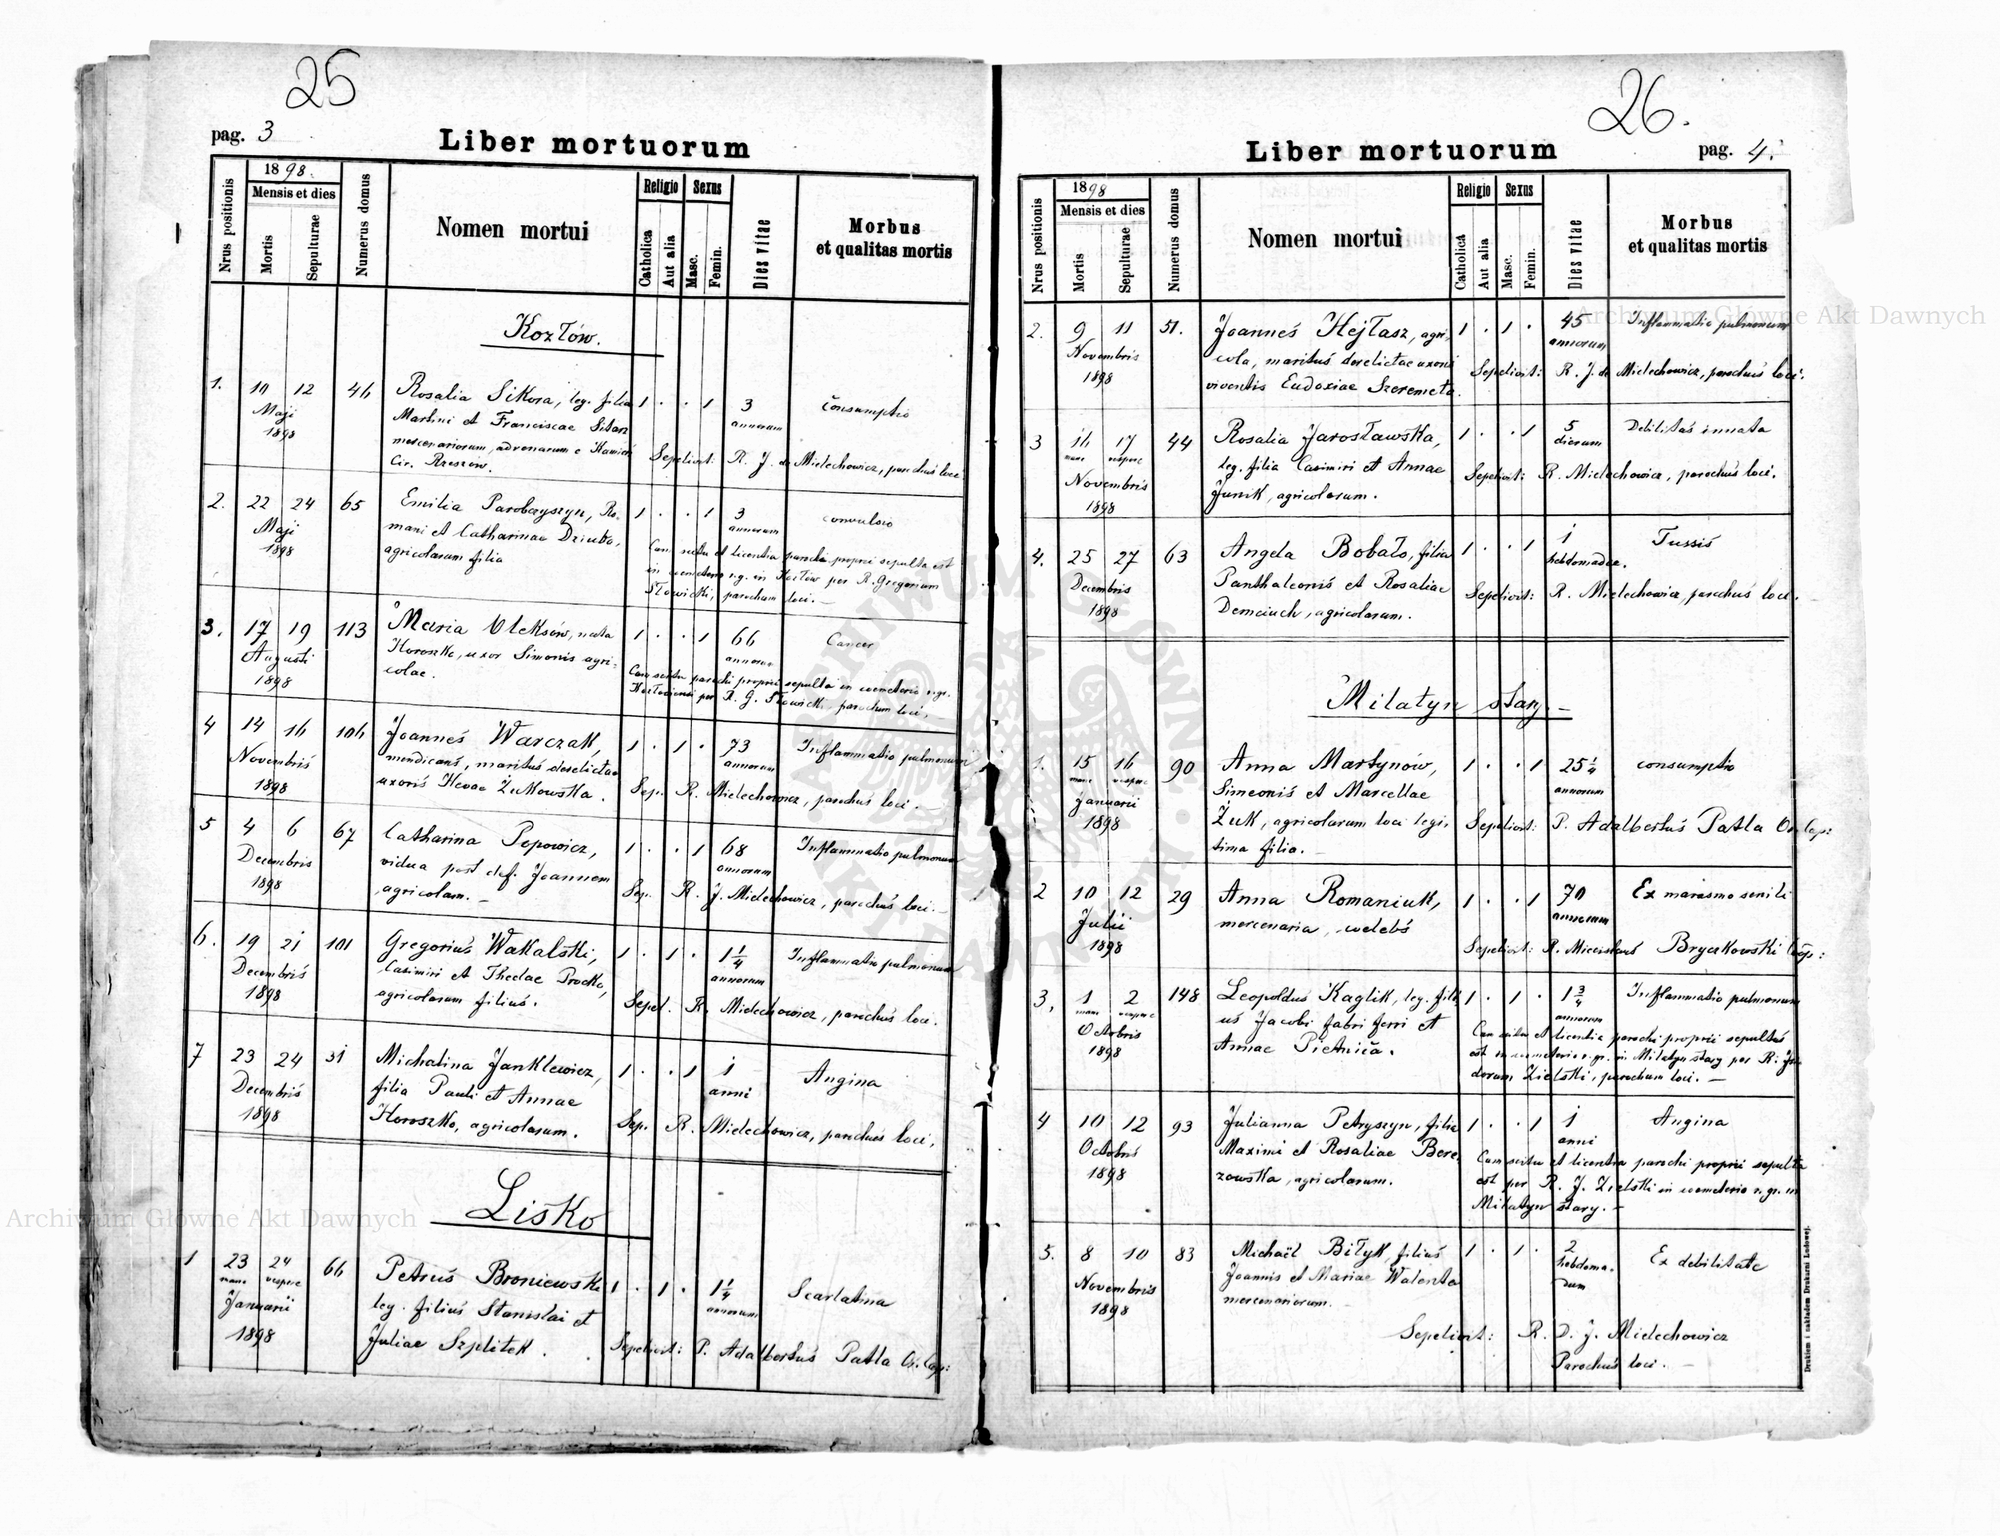 25
pag. 3
Liber mortuorum
Nrus positionis
1898.
Mensis et dies
Mortis
Sepulturae
Numerus domus
Nomen mortui
Religio
Catholica
Aut alia
Sexus
Masc.
Femin.
Dies vitae
Morbus
et qualitas mortis
Kozłów.
1. 10 12 46 Rosalia Sikora, leg. filia 1 . . 1 3 Consumptio
Maji Martini et Franciscae annorum
1898 mercenariorum, advenarum e Kamień Sepelivit: R. J. de Mielechowicz, parochus loci
Cir. Rzeszow.
2. 22 24 65 Emilia Parobczyszyn, Ro- 1 . . 1 3 convulsio
Maji mani et Catharinae Dziuba, annorum
1898 agricolarum filia Cum scitu et licentia parochi proprii sepulta est
in coemeterio r.g. in Kozłów per R. Gregorium
Słowicki, parochum loci. —
3. 17 19 113 Maria Oleksów, nata 1 . . 1 66 Cancer
Augusti Horoszko, uxor Simonis agri- annorum
1898 colae. Cum scitu parochi proprii sepulta in coemeterio r.gr.
Kozłoviensi per R. G. Słowicki, parochum loci. —
4 14 16 106 Joannes Warczak, 1 . 1 . 73 Inflammatio pulmonum
Novembris mendicans, maritus derelictae annorum
1898 uxoris Hevae Żukowska. Sep. R. Mielechowicz, parochus loci. —
5 4 6 67 Catharina Popowicz, 1 . . 1 68 Inflammatio pulmonum
Decembris vidua post def. Joannem annorum
1898 agricolam. — Sep. R. J. Mielechowicz, parochus loci. —
6. 19 21 101 Gregorius Wakalski, 1 . 1 . 1 1/4 Inflammatio pulmonum
Decembris Casimiri et Theclae Procko, annorum
1898 agricolarum filius. Sepel. R. Mielechowicz, parochus loci.
7 23 24 31 Michalina Janklewicz, 1 . . 1 1 Angina
Decembris filia Pauli et Annae anni
1898 Horoszko, agricolarum. Sep. R. Mielechowicz, parochus loci.
Lisko
1 23 24 66 Petrus Broniewski 1 . 1 . 1 1/4 Scarlatina
mane vespere leg. filius Stanislai et annorum
Januarii
1898 Juliae Szplitek. Sepelivit: P. Adalbertus Patla Or. Cap:
26.
Liber mortuorum
pag. 4.
Nrus positionis
1898
Mensis et dies
Mortis
Sepulturae
Numerus domus
Nomen mortui
Religio
Catholica
Aut alia
Sexus
Masc.
Femin.
Dies vitae
Morbus
et qualitas mortis
2. 9 11 51. Joannes Hejłasz, agri- 1 . 1 . 45 Inflammatio pulmonum
Novembris cola, maritus derelictae uxoris annorum
1898 viventis Eudoxiae Szeremeta. Sepelivit: R. J. de Mielechowicz, parochus loci.
3 16 17 44 Rosalia Jarosławska, 1 . . 1 5 Debilitas innata
mane vespere leg. filia Casimiri et Annae diorum
Novembris Junik, agricolarum. Sepelivit: R. Mielechowicz, parochus loci.
1898
4. 25 27 63 Angela Bobało, filia 1 . . 1 1 Tussis
Decembris Panthaleonis et Rosaliae hebdomadae.
1898 Demciuch, agricolarum. Sepelivit: R. Mielechowicz, parochus loci.
Milatyn stary. —
1. 15 16 90 Anna Martynow, 1 . . 1 25 1/4 consumptio
mane vespere Simeonis et Marcellae annorum
Januarii
1898 Żuk, agricolarum loci legi- Sepelivit: P. Adalbertus Patla Or. Cap:
tima filia. —
2 10 12 29 Anna Romaniuk, 1 . . 1 70 Ex marasmo senili
Julii mercenaria, coelebs annorum
1898 Sepelivit: R. Miecislaus Bryczkowski Coop:
3, 1 2 148 Leopoldus Kaglik, leg. fili- 1 . 1 . 1 3/4 Inflammatio pulmonum
mane vespere us Jacobi fabri ferri et annorum
Octobris Annae Pietnica. Cum scitu et licentia parochi proprii sepultus
1898 est in coemeterio r.gr. in Milatyn stary per R. Isi-
dorum Zielski, parochum loci. —
4 10 12 93 Julianna Petryszyn, filia 1 . . 1 1 Angina
Octobris Maximi et Rosaliae Bere- anni
1898 zowska, agricolarum. Cum scitu et licentia parochi proprii sepulta
est per R. J. Zielski in coemeterio r.gr. in
Milatyn stary. —
5. 8 10 83 Michaël Biłyk, filius 1 . 1 . 2 Ex debilitate
Novembris Joannis et Mariae Walenta hebdoma-
1898 mercenariorum. dum
Sepelivit: R. D. J. Mielechowicz
Parochus loci. —
Drukiem i nakładem Drukarni Ludowej.
Archiwum Główne Akt Dawnych
Archiwum Główne Akt Dawnych
ARCHIWUM GŁÓWNE AKT DAWNYCH